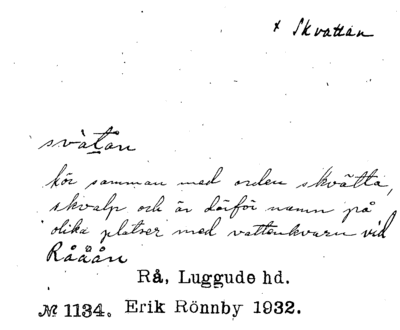 x Skvattan
svàtån
hör samman med orden skvätta,
skvalp och är därför namn på
olika platser med vattenkvarn vid
Rååån
Rå, Luggude hd.
№ 1134. Erik Rönnby 1932.